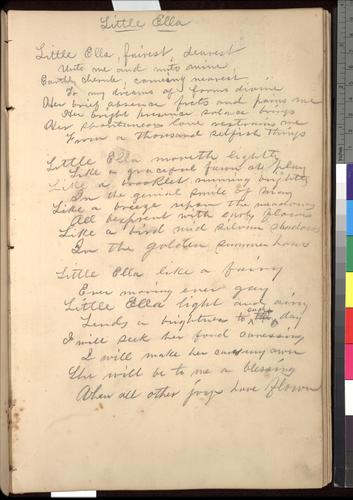 Little Ella
Little Ella, fairest, dearest
Unto me and unto mine,
Earthly cherub, coming nearest
To my dreams of forms divine
Her brief absence frets and pains me
Her bright presence solace brings
Her spontaneous love restrains me
From a thousand selfish things
Little Ella moveth lightly
Like a graceful fawn at play
Like a brooklet running brightly
In the genial smile of May
Like a breeze upon the meadows
All besprent with early flowers
Like a bird mid silvern shadows
In the golden summer hours
Little Ella like a fairy
Ever moving ever gay
Little Ella light and airy
Lends a brightness to each day
I will seek her fond caressing
I will make her my own
She will be to me a blessing
When all other joys have flown